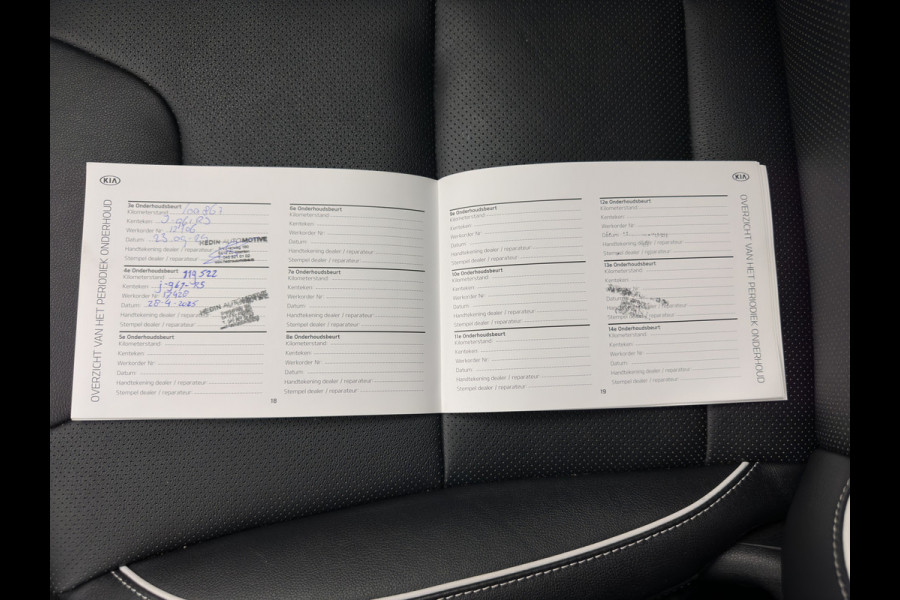 KIA
OVERZICHT VAN HET PERIODIEK ONDERHOUD
3e Onderhoudsbeurt
Kilometerstand
Kenteken
Werkorder Nr.
Datum 23.09.
Handtekening dealer / reparateur
Stempel dealer / reparateur
HEDIN AUTOMOTIVE
4e Onderhoudsbeurt
Kilometerstand 119522
Kenteken J-967-RS
Werkorder Nr. 17920
Datum 28-9-2025
Handtekening dealer / reparateur
Stempel dealer / reparateur
HEDIN AUTOMOTIVE
5e Onderhoudsbeurt
Kilometerstand
Kenteken
Werkorder Nr.
Datum
Handtekening dealer / reparateur
Stempel dealer / reparateur
6e Onderhoudsbeurt
Kilometerstand
Kenteken
Werkorder Nr.
Datum
Handtekening dealer / reparateur
Stempel dealer / reparateur
7e Onderhoudsbeurt
Kilometerstand
Kenteken
Werkorder Nr.
Datum
Handtekening dealer / reparateur
Stempel dealer / reparateur
8e Onderhoudsbeurt
Kilometerstand
Kenteken
Werkorder Nr.
Datum
Handtekening dealer / reparateur
Stempel dealer / reparateur
18
9e Onderhoudsbeurt
Kilometerstand
Kenteken
Werkorder Nr.
Datum
Handtekening dealer / reparateur
Stempel dealer / reparateur
10e Onderhoudsbeurt
Kilometerstand
Kenteken
Werkorder Nr.
Datum
Handtekening dealer / reparateur
Stempel dealer / reparateur
11e Onderhoudsbeurt
Kilometerstand
Kenteken
Werkorder Nr.
Datum
Handtekening dealer / reparateur
Stempel dealer / reparateur
12e Onderhoudsbeurt
Kilometerstand
Kenteken
Werkorder Nr.
Datum
Handtekening dealer / reparateur
Stempel dealer / reparateur
13e Onderhoudsbeurt
Kilometerstand
Datum
Handtekening dealer / reparateur
Stempel dealer / reparateur
14e Onderhoudsbeurt
Kilometerstand
Kenteken
Werkorder Nr.
Datum
Handtekening dealer / reparateur
Stempel dealer / reparateur
19
KIA
OVERZICHT VAN HET PERIODIEK ONDERHOUD